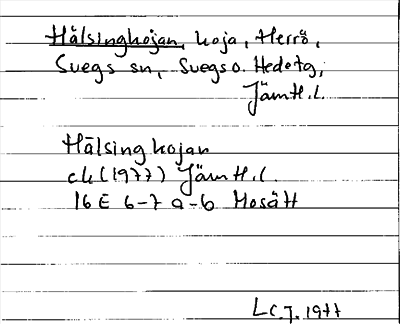 Hälsingkojan, koja, Herrö,
Svegs sn, Svegs o. Hede tg,
Jämtl. l.
Hälsingkojan
ek (1977) Jämtl. l.
16 E 6-7 a-b Mosätt
LCJ. 1977